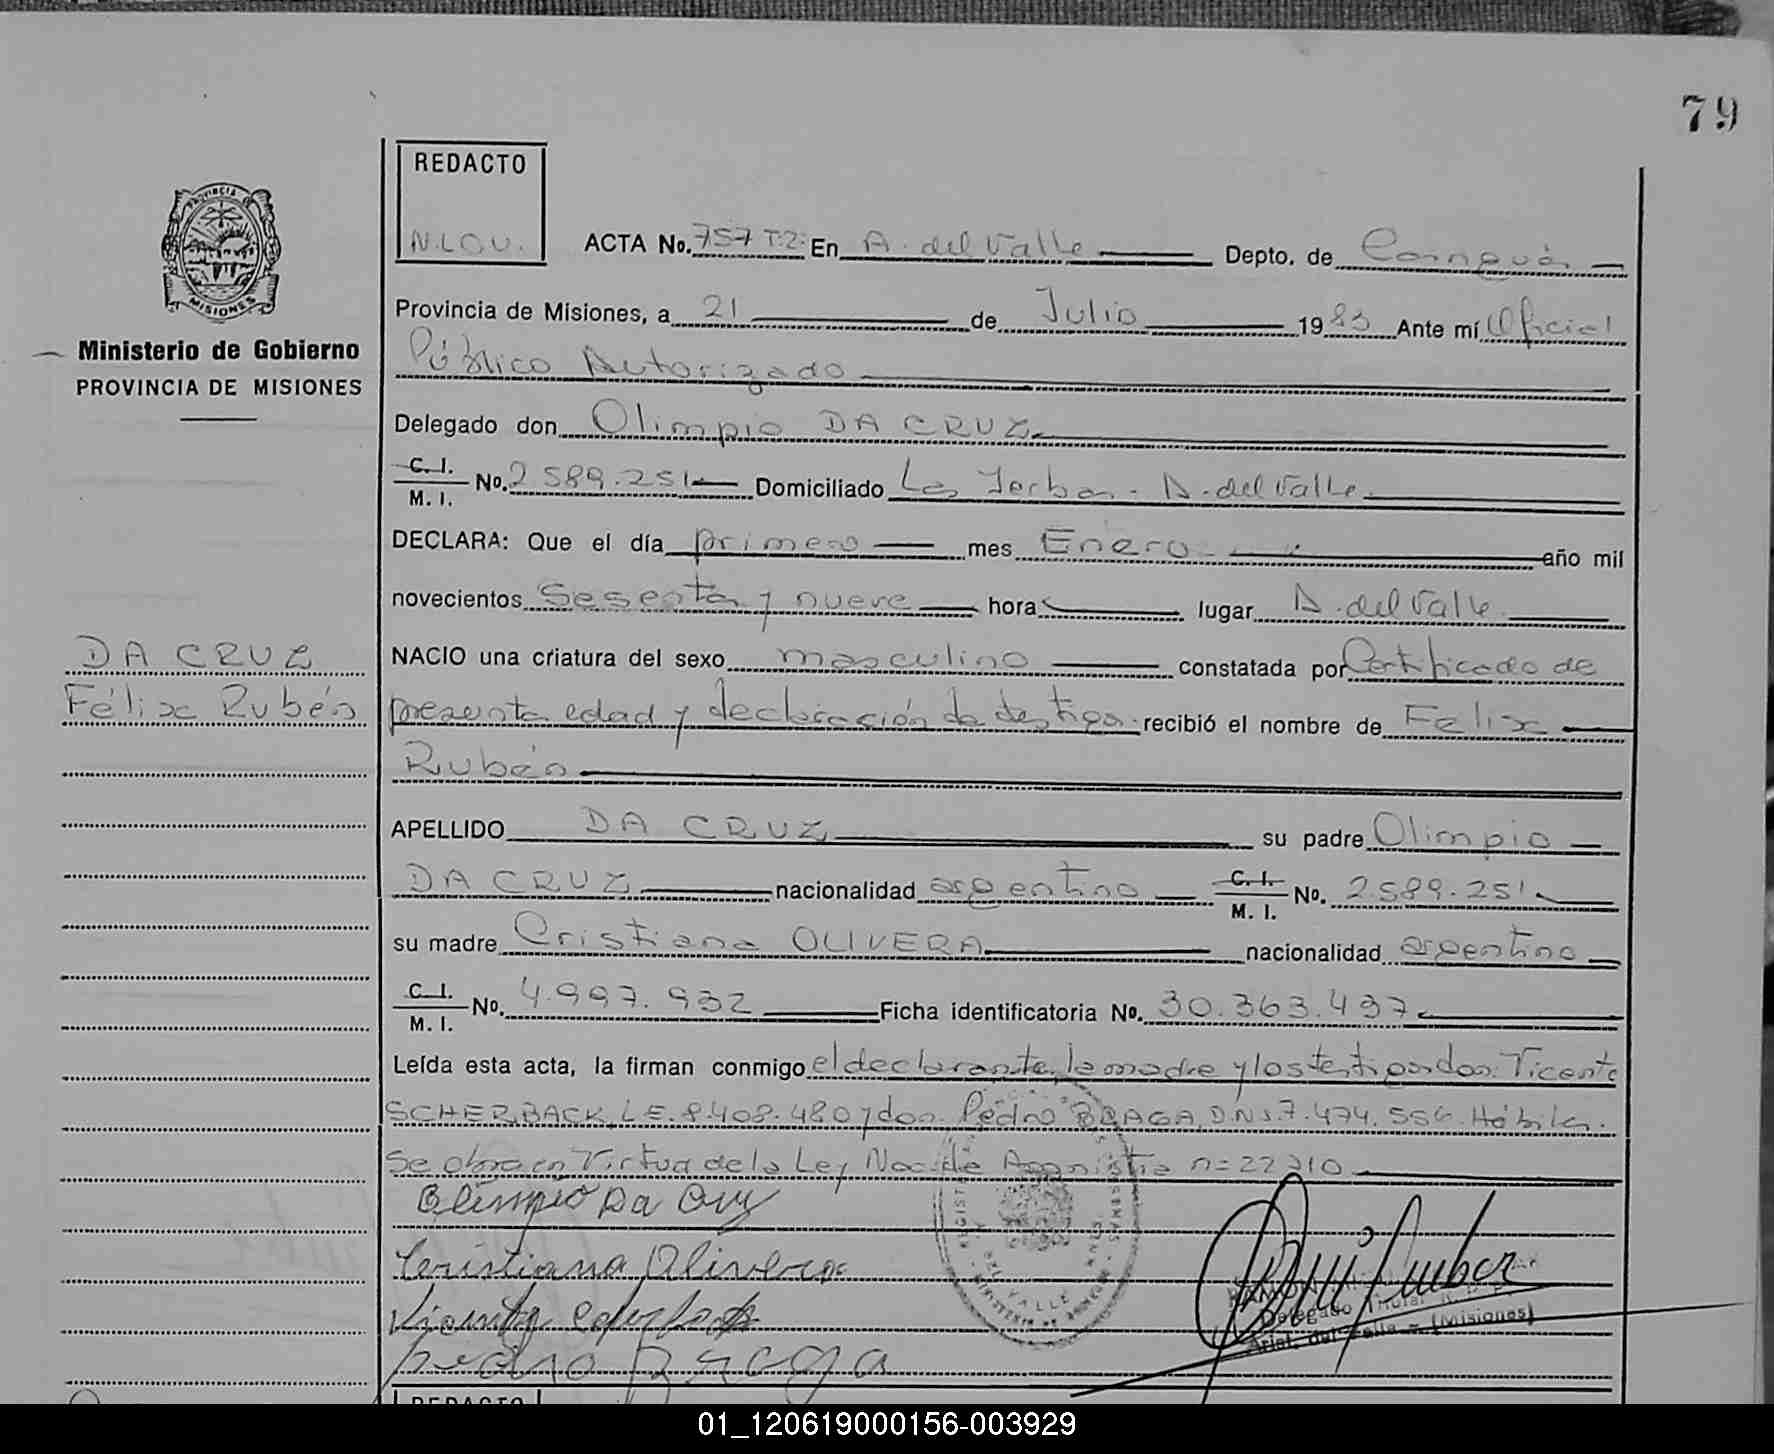 79
REDACTO
N.LOU.
ACTA No. 757 T:2: En A. del Valle Depto. de Cainguás
PROVINCIA DE
MISIONES
Provincia de Misiones, a 21 de Julio 1983 Ante mí Oficial
Ministerio de Gobierno
PROVINCIA DE MISIONES
Público Autorizado
Delegado don Olimpio DA CRUZ
C. I.
M. I.
No. 2.589.251 Domiciliado Las Yerbas - A. del Valle
DECLARA: Que el día primero mes Enero año mil
novecientos Sesenta y nueve hora lugar A. del Valle
DA CRUZ
Félix Rubén
NACIO una criatura del sexo masculino constatada por Certificado de
presunta edad y declaración de testigos recibió el nombre de Felix
Rubén
APELLIDO DA CRUZ su padre Olimpio
DA CRUZ nacionalidad argentino C. I. M. I. No. 2.589.251
su madre Cristiana OLIVERA nacionalidad argentina
C. I.
M. I.
No. 4.997.932 Ficha identificatoria No. 30.363.497
Leída esta acta, la firman conmigo el declarante, la madre y los testigos don: Vicente
SCHERBACK, L.E. 8.408.480 y don Pedro BRAGA, D.N.I. 7.474.556. Hábiles.
Se obra en Virtud de la Ley Nac. de Amnistia n= 22310
Olimpio Da Cruz
Cristiana Olivera
Pedro Braga
Delegado Titular
Arist. del Valle - (Misiones)
REDACTO
01_120619000156-003929